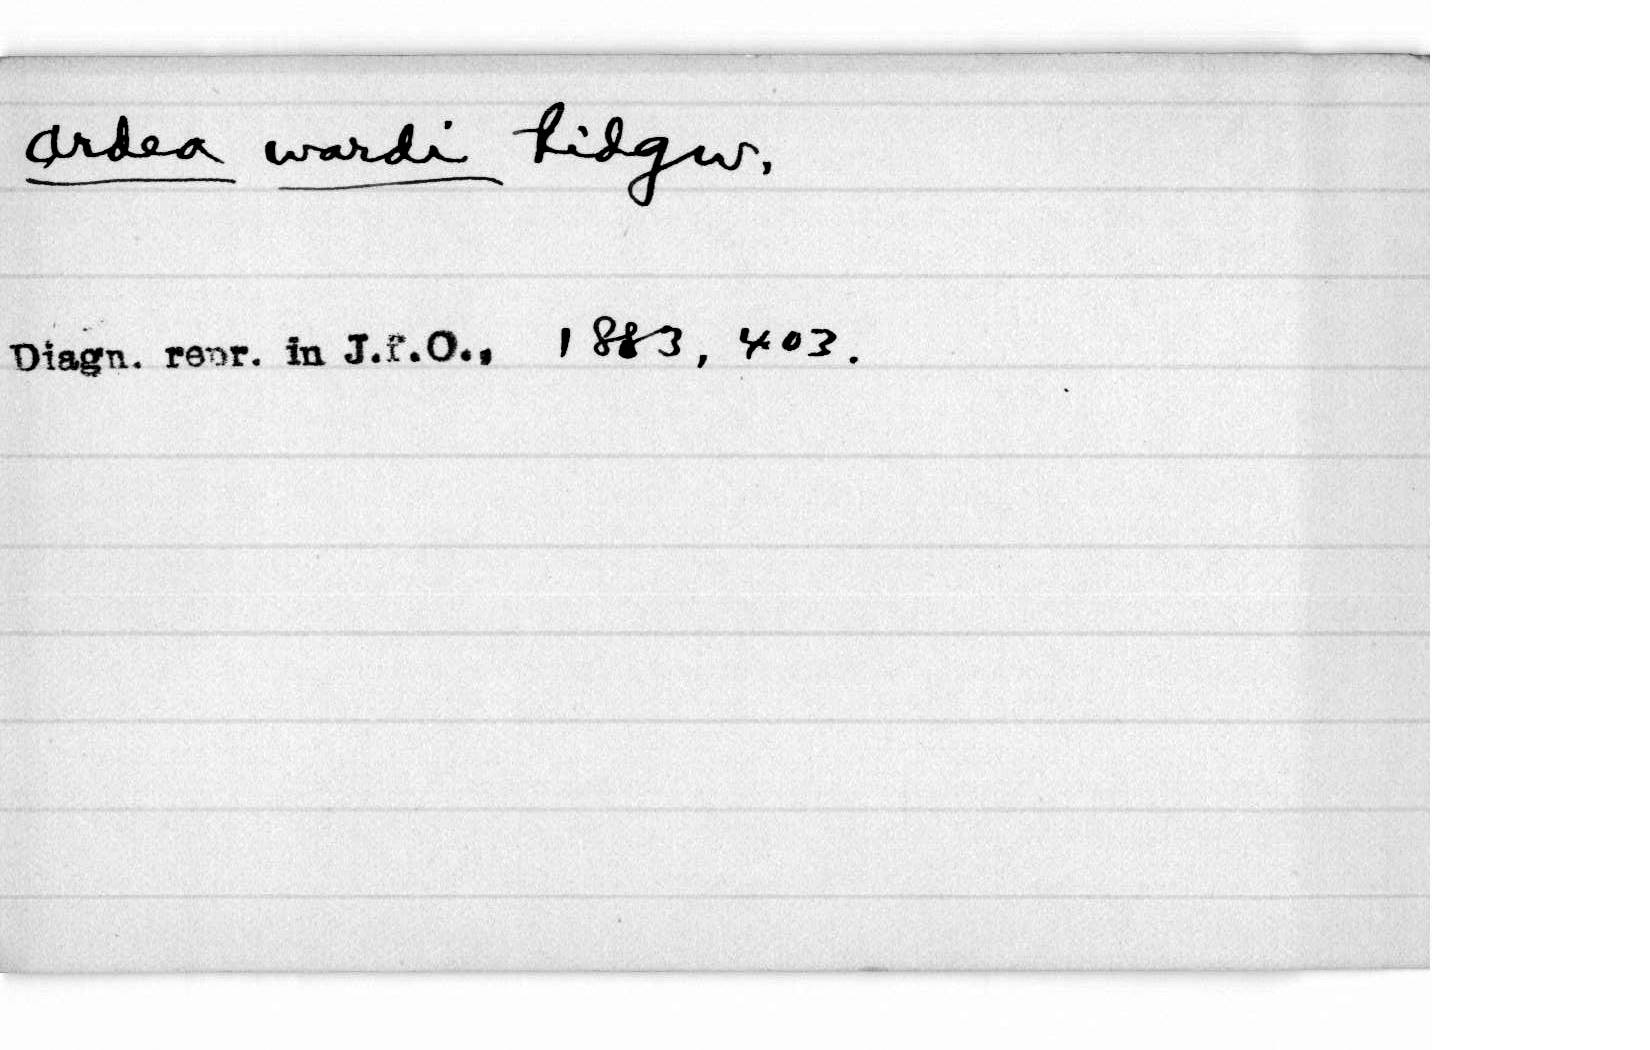 Ardea wardi Ridgw.,
Diagn. repr. in J.f.O., 1883, 403.